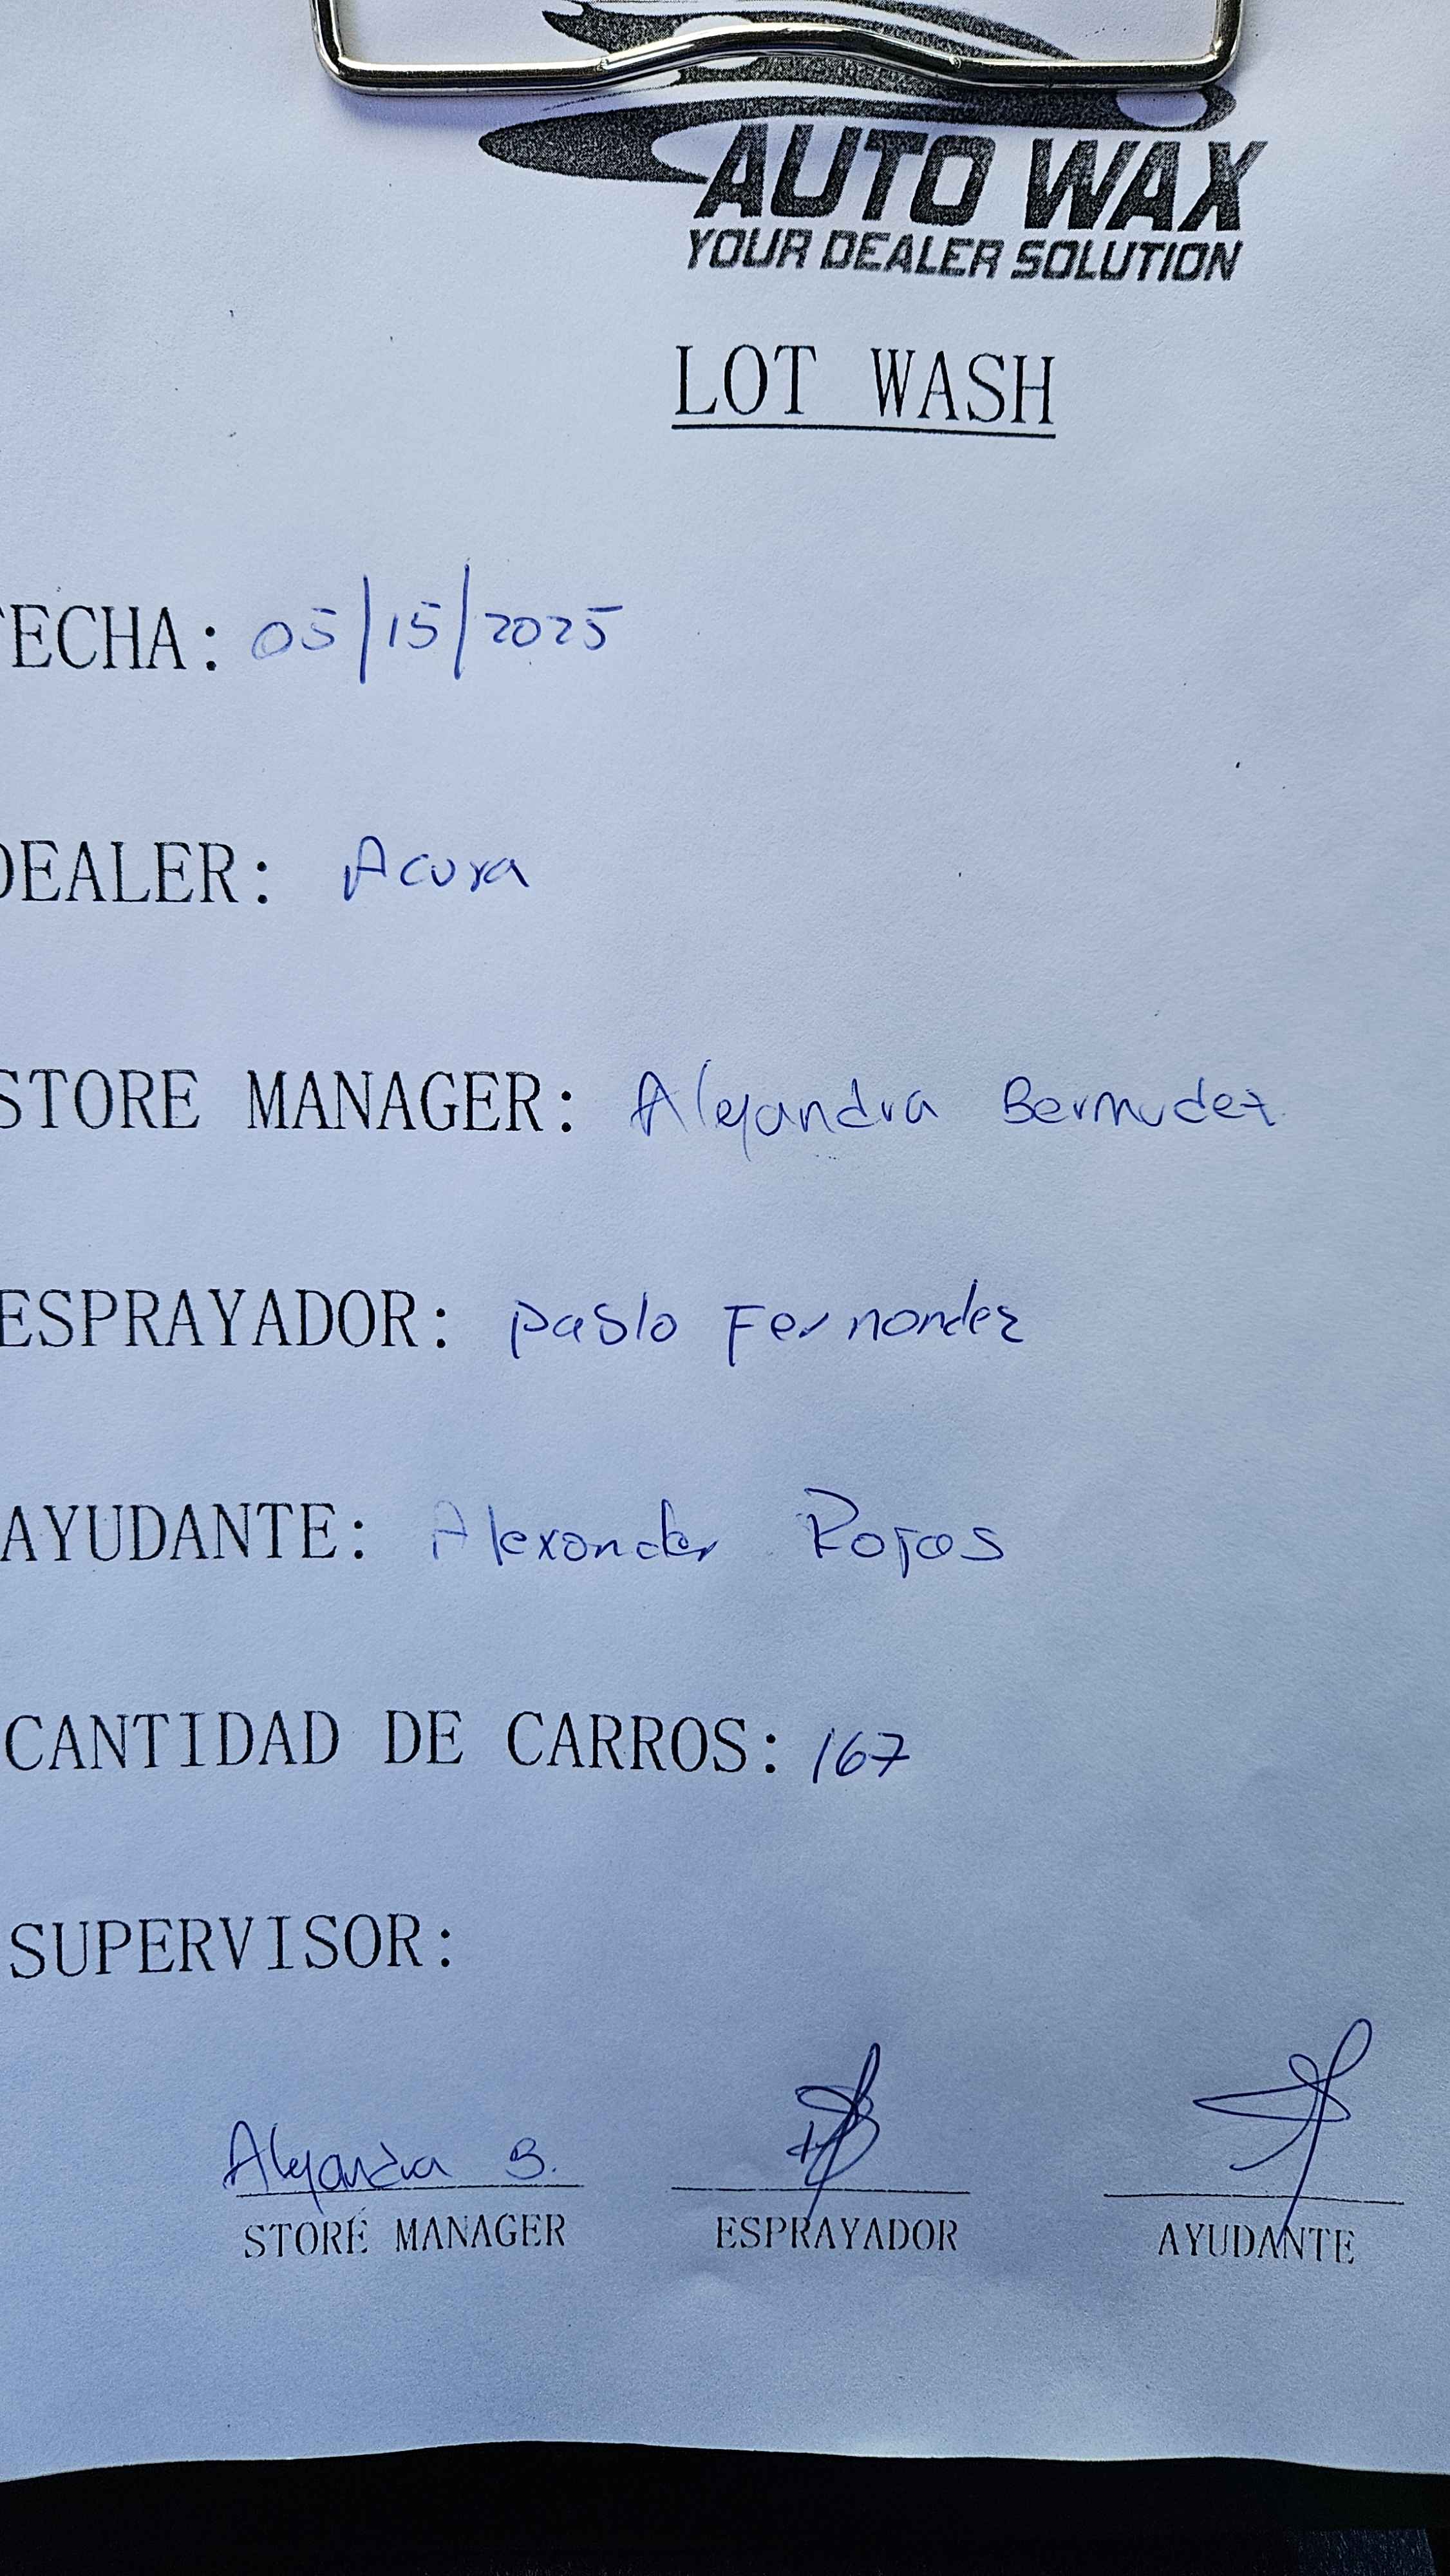 AUTO WAX
YOUR DEALER SOLUTION
LOT WASH
FECHA: 05/15/2025
DEALER: Acura
STORE MANAGER: Alejandra Bermudez
ESPRAYADOR: Pablo Fernandez
AYUDANTE: Alexander Rojas
CANTIDAD DE CARROS: 167
SUPERVISOR:
Alejandra B.
STORE MANAGER ESPRAYADOR AYUDANTE